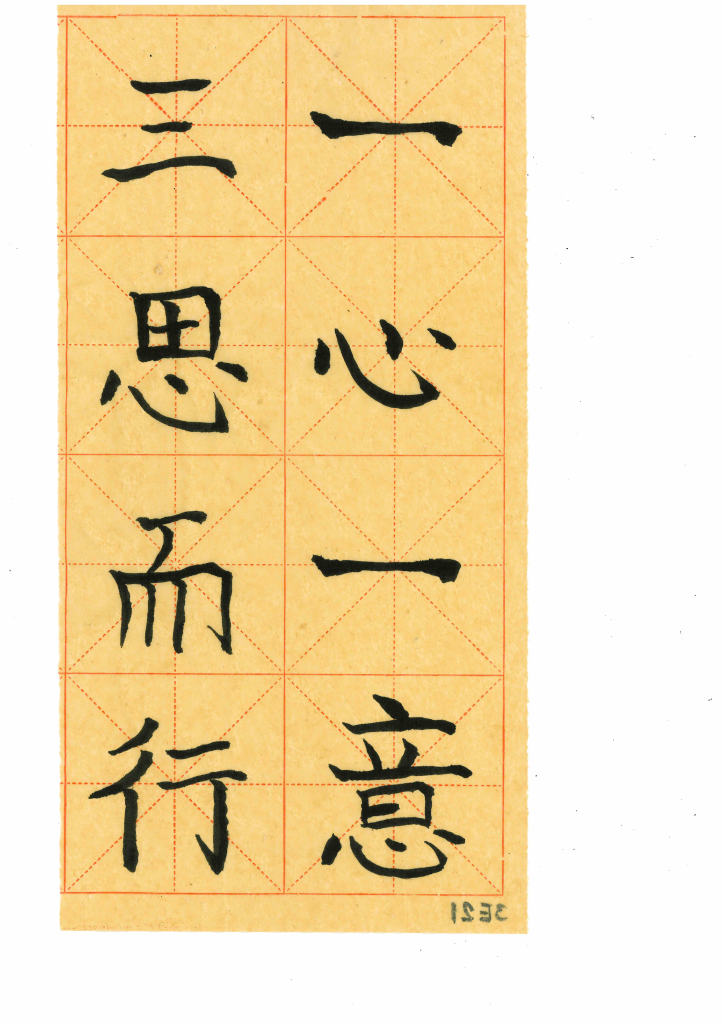 一心一意
三思而行
3E21